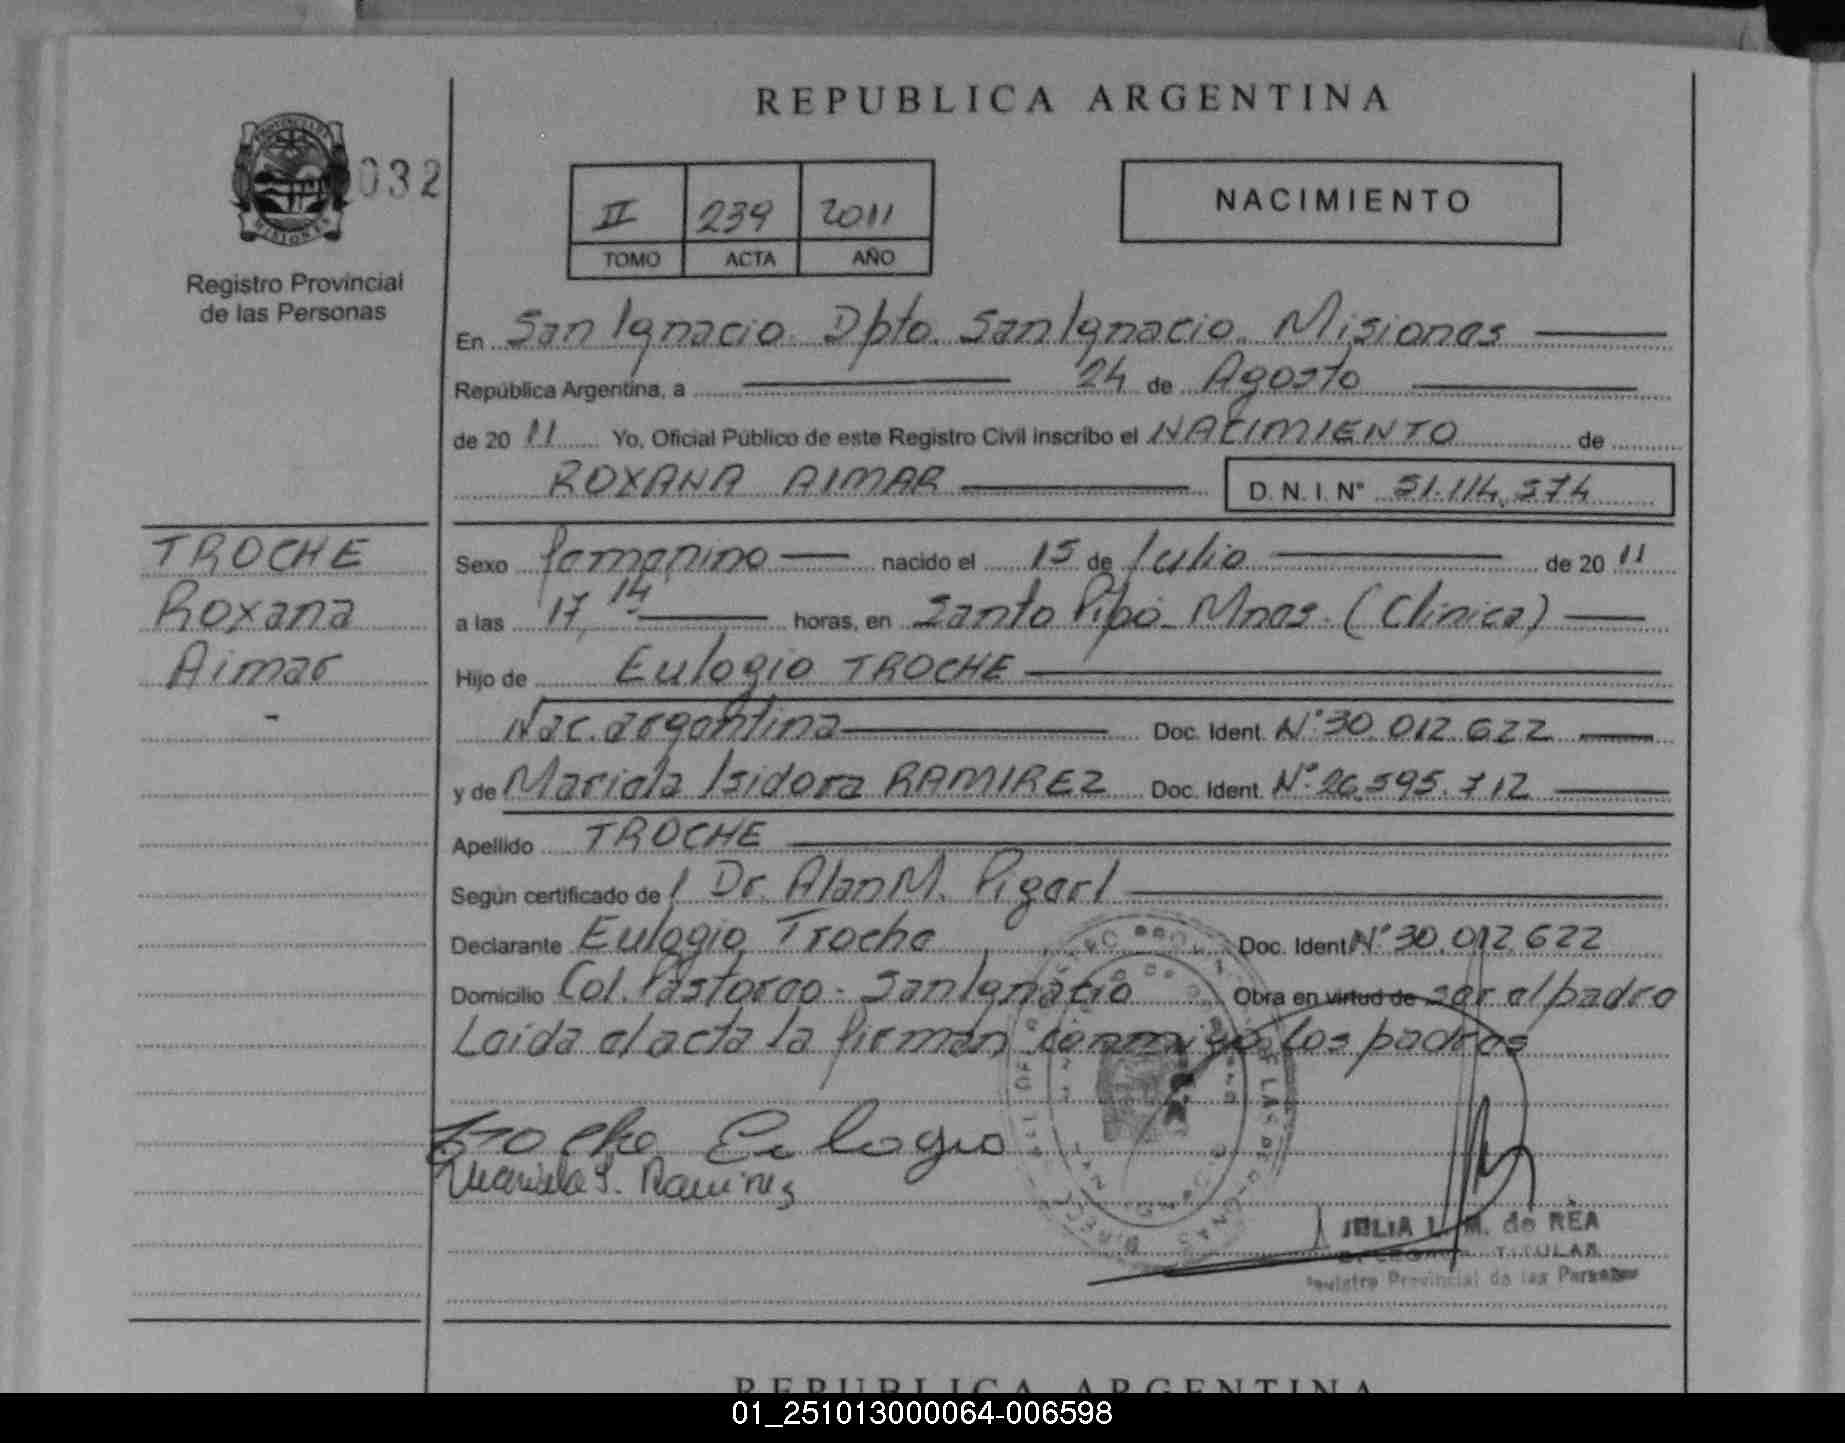 REPUBLICA ARGENTINA
032
NACIMIENTO
II 239 2011
TOMO ACTA AÑO
Registro Provincial
de las Personas
En San Ignacio Dpto. San Ignacio Misiones
República Argentina, a 24 de Agosto
de 20 11 Yo, Oficial Público de este Registro Civil inscribo el NACIMIENTO de
ROXANA AIMAR D.N.I. Nº 51.114.574
TROCHE
Roxana
Aimar
Sexo femenino nacido el 15 de Julio de 20 11
a las 17,14 horas, en Santo Pipó Mnes. (Clínica)
Hijo de Eulogio TROCHE
Nac. argentina Doc. Ident. Nº 30.012.622
y de Mariela Isidora RAMIREZ Doc. Ident. Nº 26.595.712
Apellido TROCHE
Según certificado de Dr. Alan M.
Declarante Eulogio Troche Doc. Ident. Nº 30.012.622
Domicilio Col. Pastoreo - San Ignacio Obra en virtud de ser el padre
Leída el acta la firman conmigo los padres
Troche Eulogio
Mariela I. Ramires
JULIA L. M. de REA
TITULAR
Registro Provincial de las Personas
REPUBLICA ARGENTINA
01_251013000064-006598